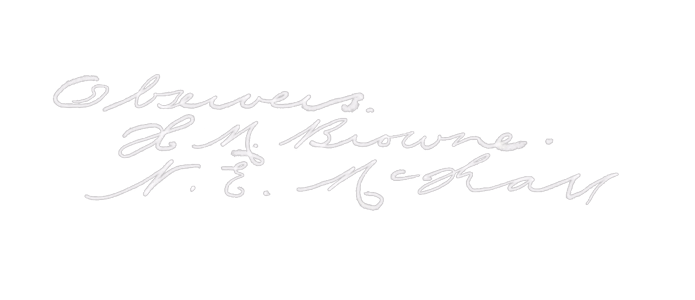 Observers.
H. M. Browne.
N. E. McPhall